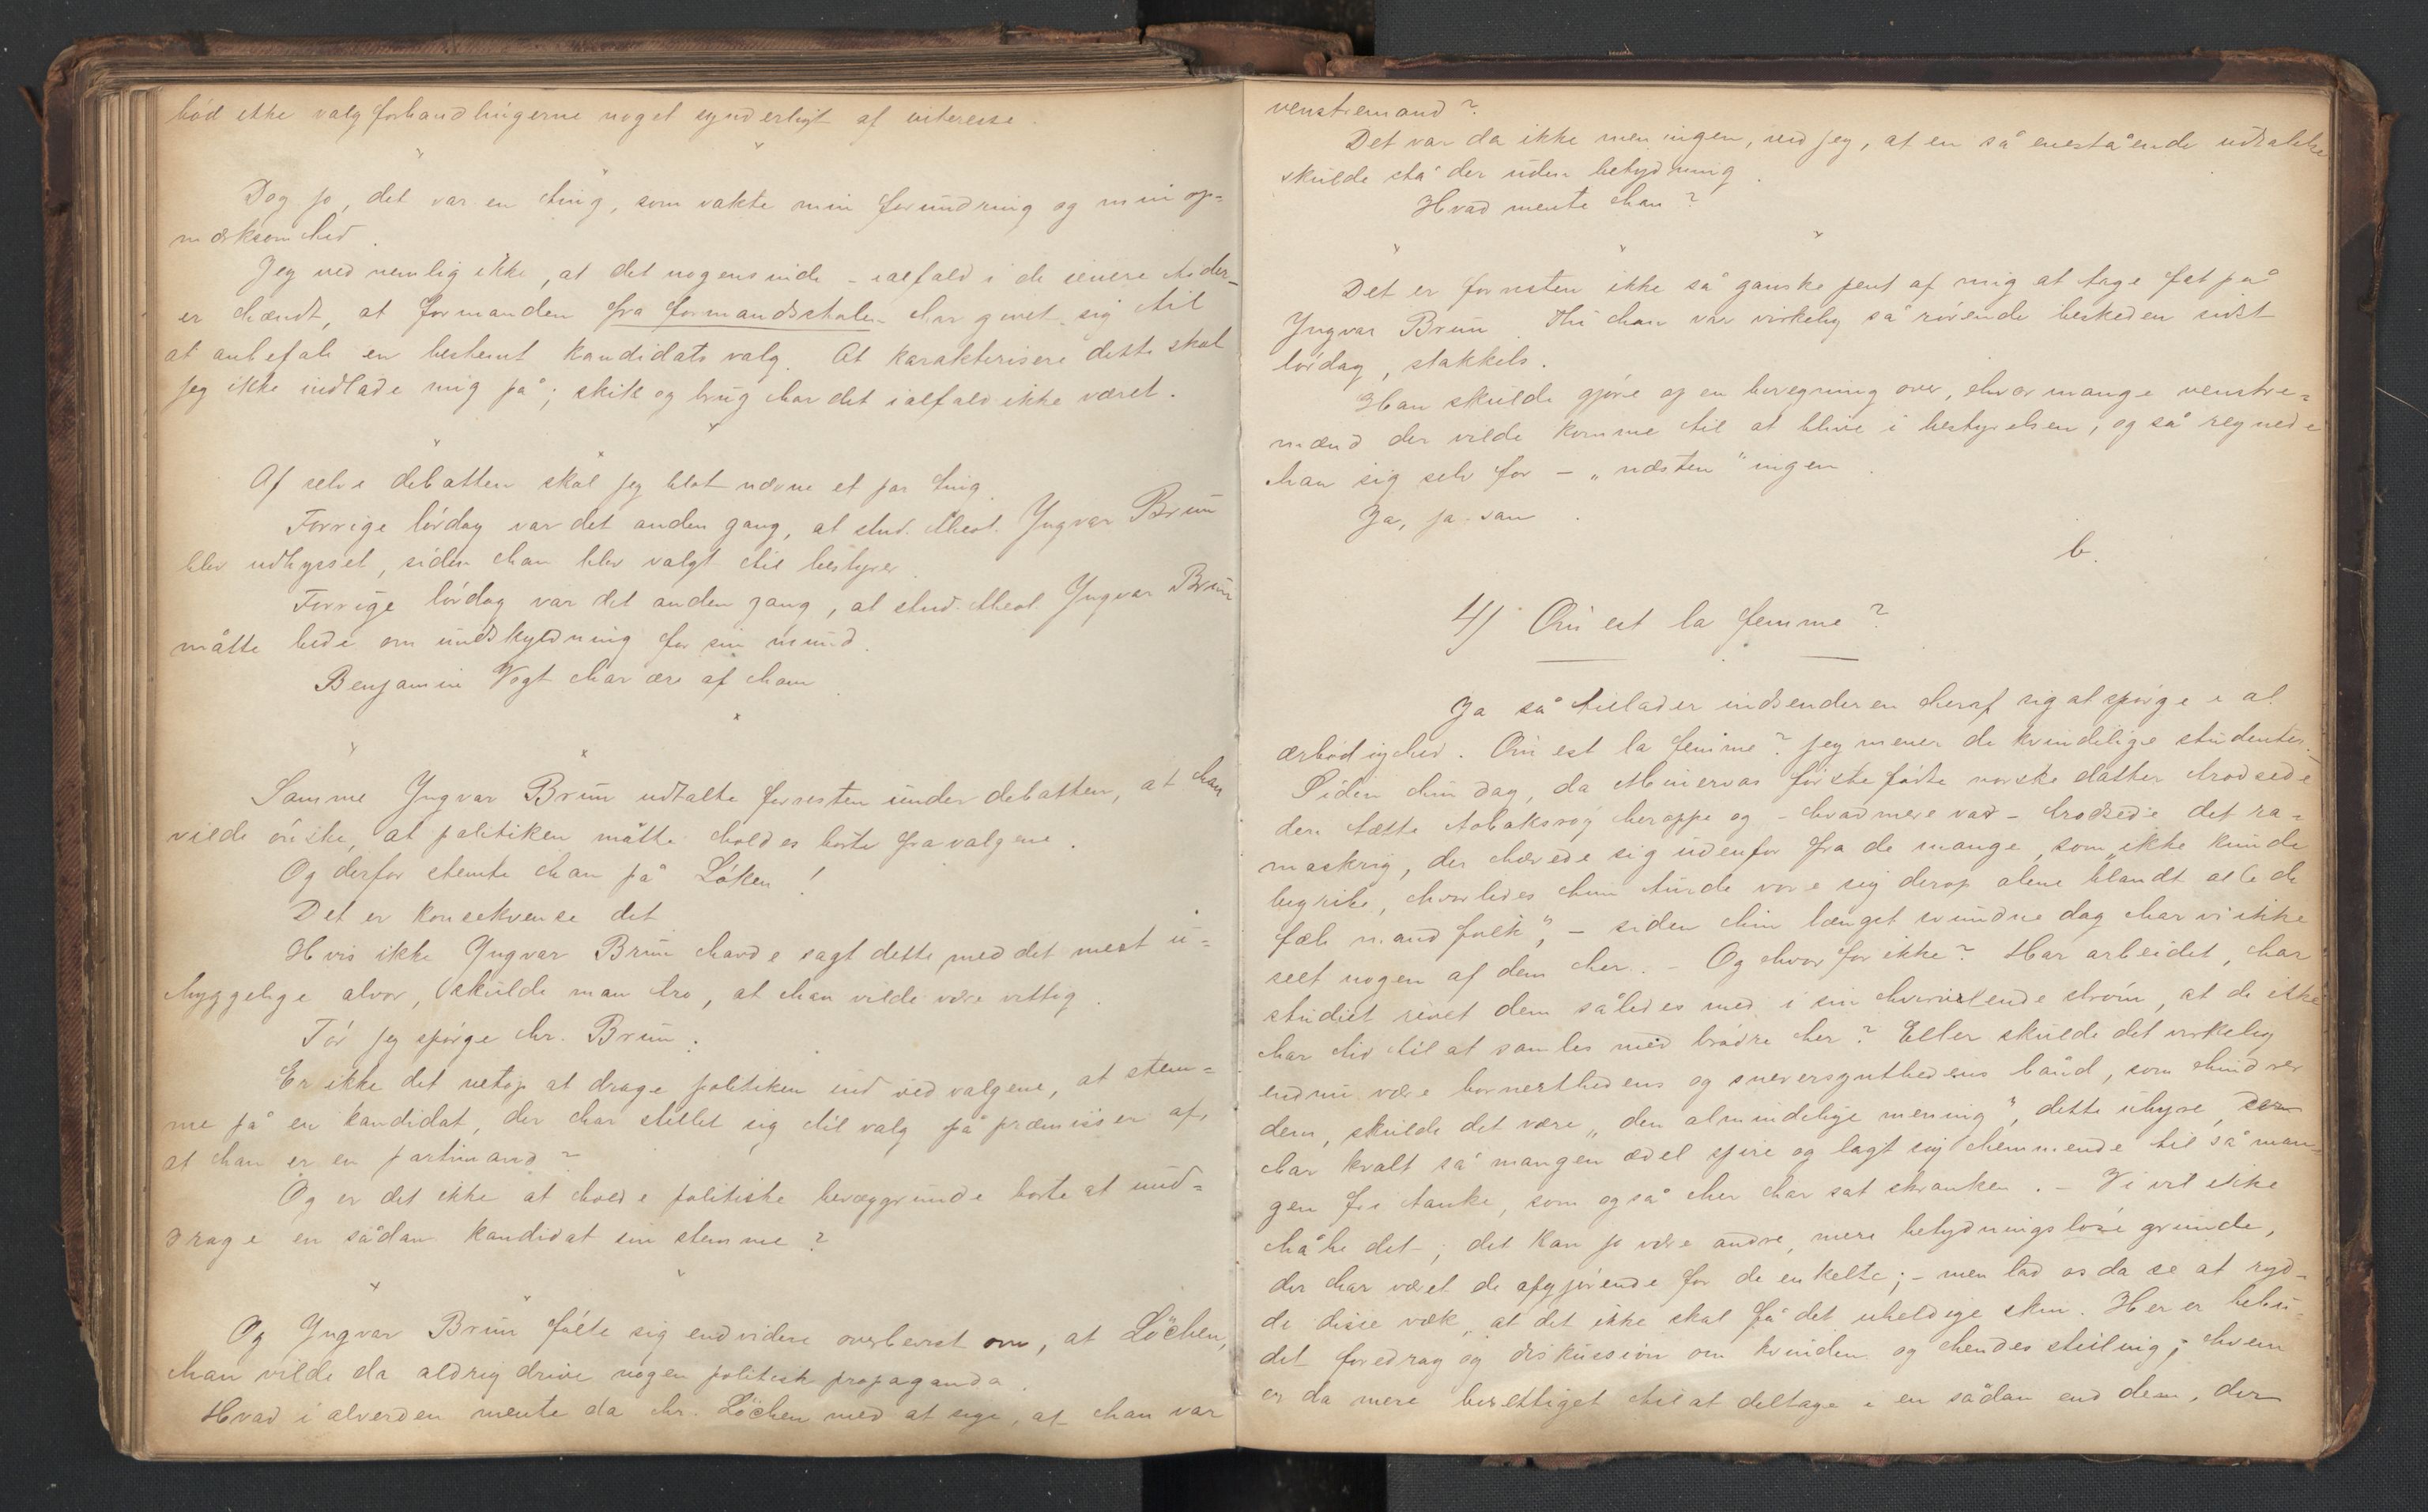 bød ikke valgforhandlingerne noget synderligt af interesse.
Dog jo, det var en ting, som vakte min forundring og min op-
mærksomhed.
Jeg ved nemlig ikke, at det nogensinde - ialfald i de senere tider -
er hændt, at formanden fra formandsstolen har givet sig til
at anbefale en bestemt kandidats valg. At karakterisere dette skal
jeg ikke indlade mig på; skik og brug har det ialfald ikke været.
Af selve debatten skal jeg blot nævne et par ting.
Forrige lørdag var det anden gang, at stud. theol. Yngvar Brun
blev udhysset, siden han blev valgt til bestyrer.
Forrige lørdag var det anden gang, at stud. theol. Yngvar Brun
måtte bede om undskyldning for sin mund.
Benjamin Vogt har ære af ham.
Samme Yngvar Brun udtalte forresten under debatten, at han
vilde ønske, at politiken måtte holdes borte fra valgene.
Og derfor stemte han på Løken!
Det er konsekvense det
Hvis ikke Yngvar Brun havde sagt dette med det mest u-
hyggelige alvor, skulde man tro, at han vilde være vittig.
Tør jeg spørge hr. Brun:
Er ikke det netop at drage politiken ind ved valgene, at stem-
me på en kandidat, der har stillet sig til valg på præmisser af,
at han er en partimand?
Og er det ikke at holde politiske bevæggrunde borte at und-
drage en sådan kandidat sin stemme?
Og Yngvar Brun følte sig endvidere overbevist om, at Løchen,
han vilde da aldrig drive nogen politisk propaganda.
Hvad i alverden mente da hr. Løchen med at sige, at han var
venstremand?
Det var da ikke meningen, ved jeg, at en så enestående udtalelse
skulde stå der uden betydning.
Hvad mente han?
Det er forresten ikke så ganske pent af mig at tage fat på
Yngvar Brun. Thi han var virkelig så rørende beskeden sidst
lørdag, stakkels.
Han skulde gjøre op en beregning over, hvor mange venstre-
mænd der vilde komme til at blive i bestyrelsen, og så regnede
han sig selv for - "næsten" ingen.
Ja, ja san.
b.
4) Où est la femme?
Ja så tillader indsenderen heraf sig at spørge i al
ærbødighed. Où est la femme? Jeg mener de kvindelige studenter.
Siden hin dag, da Minervas førstefødte norske datter trodsede
den tætte tobaksrøg heroppe og - hvad mere var - trodsede det ra-
maskrig, der hævede sig udenfor fra de mange, som "ikke kunde
begribe, hvorledes hun turde vove sig derop alene blandt alle de
fæle mandfolk", - siden hin længst svundne dag har vi ikke
seet nogen af dem her. - Og hvorfor ikke? Har arbeidet, har
studiet revet dem således med i sin hvirvlende strøm, at de ikke
har tid til at samles med brødre her? Eller skulde det virkelig
endnu være bornerthedens og sneversynthedens bånd, som hindrer
dem, skulde det være "den almindelige mening", dette uhyre, der
har kvalt så mangen ædel spire og lagt sig hemmende til så man-
gen fri tanke, som også her har sat skranken. - Vi vil ikke
håbe det -; det kan jo være andre, mere betydningsløse grunde,
der har været de afgjørende for de enkelte; - men lad os da se at ryd-
de disse væk, at det ikke skal få det uheldige skin. Her er bebu-
det foredrag og diskussion om kvinden og hendes stilling; hvem
er da mere berettiget til at deltage i en sådan end dem, der